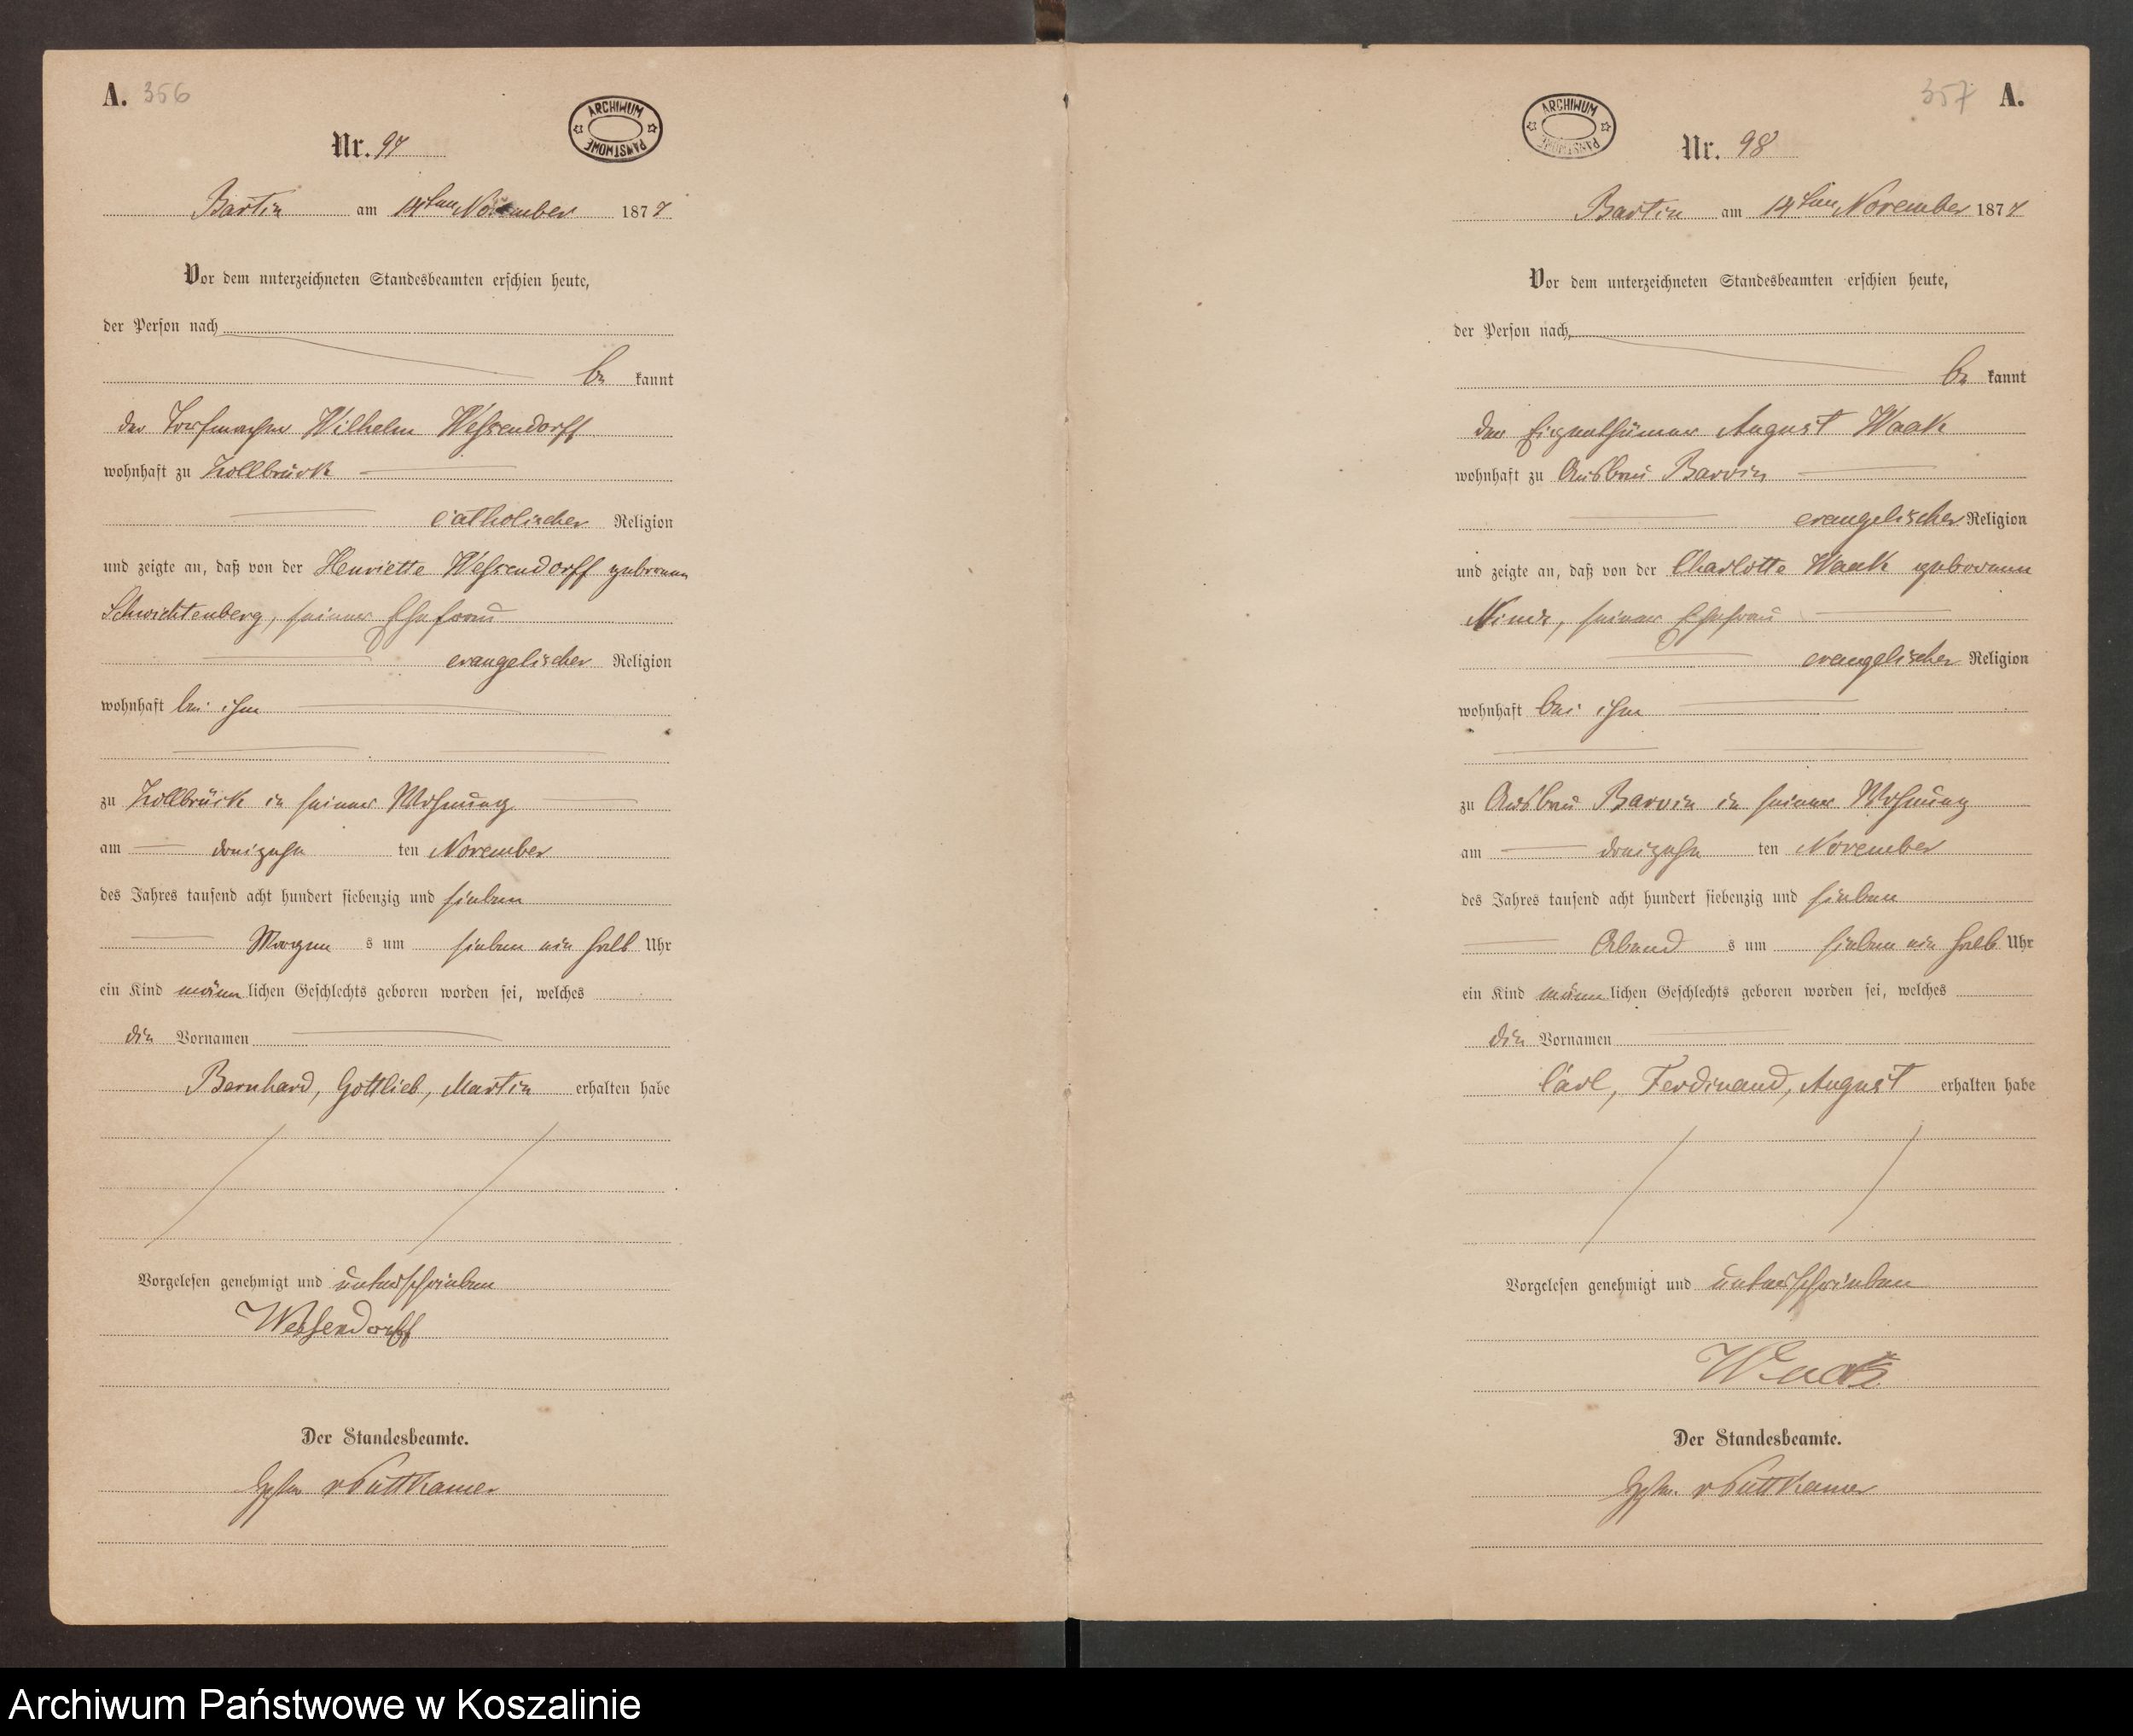 A. 356
ARCHIWUM PAŃSTWOWE
Nr. 97
Bartin am 14ten November 1877
Vor dem unterzeichneten Standesbeamten erschien heute,
der Person nach
be kannt
der Torfmacher Wilhelm Wessendorff
wohnhaft zu Zollbrück
catholischer Religion
und zeigte an, daß von der Henriette Wessendorff geborenen
Schwichtenberg, seiner Ehefrau
evangelischer Religion
wohnhaft bei ihm
zu Zollbrück in seiner Wohnung
am dreizehn ten November
des Jahres tausend acht hundert siebenzig und sieben
Morgen s um sieben ein halb Uhr
ein Kind männ lichen Geschlechts geboren worden sei, welches
die Vornamen
Bernhard, Gottlieb, Martin erhalten habe
Vorgelesen genehmigt und unterschrieben
Wessendorff
Der Standesbeamte.
v Puttkamer
357 A.
ARCHIWUM PAŃSTWOWE
Nr. 98
Bartin am 14ten November 1877
Vor dem unterzeichneten Standesbeamten erschien heute,
der Person nach
be kannt
der Eigenthümer August Waak
wohnhaft zu Ausbau Barvin
evangelischer Religion
und zeigte an, daß von der Charlotte Waak geborenen
seiner Ehefrau
evangelischer Religion
wohnhaft bei ihm
zu Ausbau Barvin in seiner Wohnung
am dreizehn ten November
des Jahres tausend acht hundert siebenzig und sieben
Abend s um sieben ein halb Uhr
ein Kind männ lichen Geschlechts geboren worden sei, welches
die Vornamen
Carl, Ferdinand, August erhalten habe
Vorgelesen genehmigt und unterschrieben
Waak
Der Standesbeamte.
v Puttkamer
Archiwum Państwowe w Koszalinie